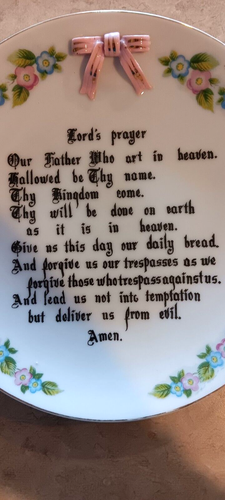 Lord's prayer
Our Father Who art in heaven.
Hallowed be Thy name.
Thy Kingdom come.
Thy will be done on earth
as it is in heaven.
Give us this day our daily bread.
And forgive us our trespasses as we
forgive those who trespass against us.
And lead us not into temptation
but deliver us from evil.
Amen.